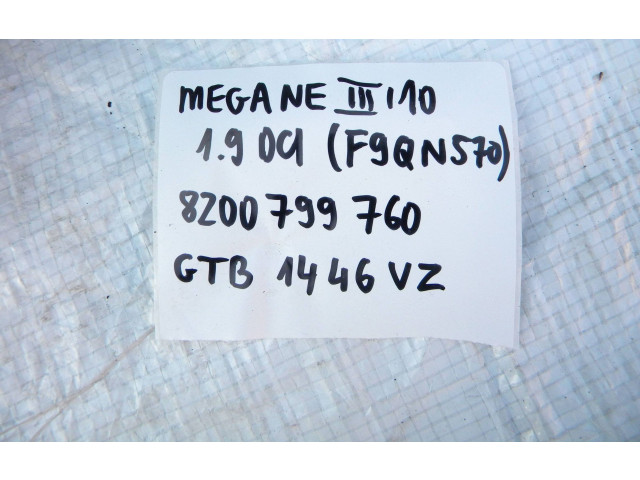 MEGANE III '10
1.9 DCI (F9QN570)
8200 799 760
GTB 1446 VZ